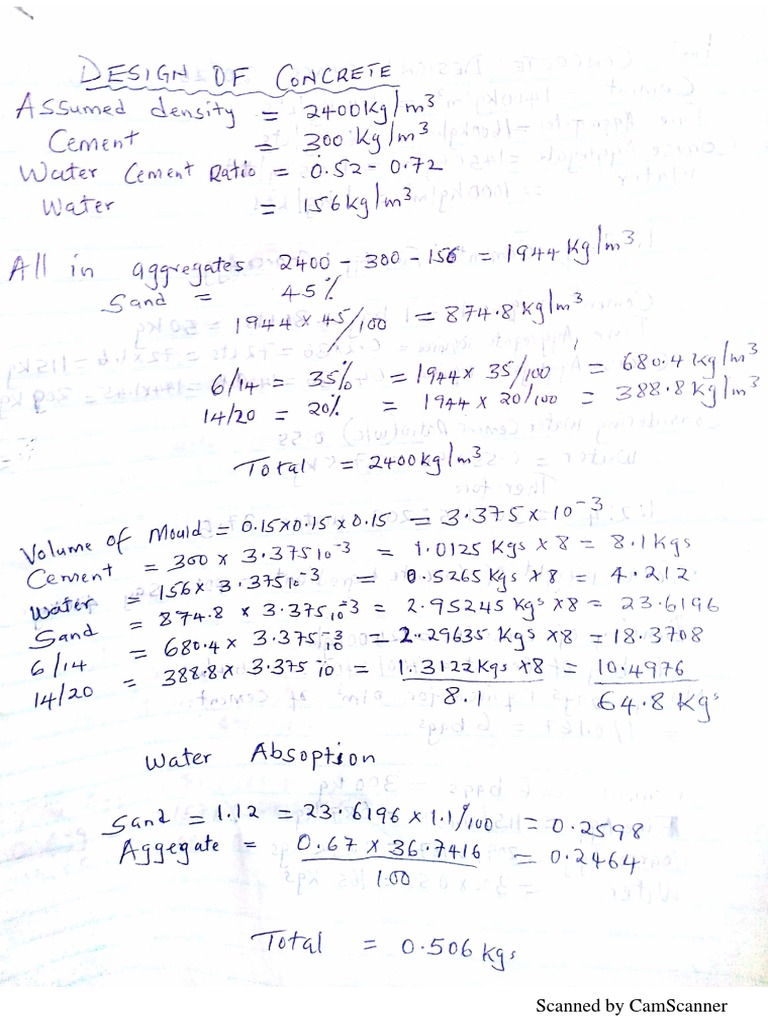 DESIGN OF CONCRETE
Assumed density = 2400Kg/m³
Cement = 300 Kg/m³
Water Cement Ratio = 0.52 - 0.72
Water = 156kg/m³
All in aggregates 2400 - 300 - 156 = 1944 Kg/m³
Sand = 45%
1944 x 45/100 = 874.8 Kg/m³
6/14 = 35% = 1944 x 35/100 = 680.4 Kg/m³
14/20 = 20% = 1944 x 20/100 = 388.8 Kg/m³
Total = 2400kg/m³
Volume of Mould = 0.15x0.15x0.15 = 3.375 x 10⁻³
Cement = 300 x 3.375 10⁻³ = 1.0125 Kgs x 8 = 8.1 Kgs
Water = 156 x 3.375 10⁻³ = 0.5265 Kgs x 8 = 4.212
Sand = 874.8 x 3.375 10⁻³ = 2.95245 Kgs x 8 = 23.6196
6/14 = 680.4 x 3.375 10⁻³ = 2.29635 Kgs x 8 = 18.3708
14/20 = 388.8 x 3.375 10 = 1.3122 Kgs x 8 = 10.4976
8.1 64.8 Kgs
Water Absoption
Sand = 1.12 = 23.6196 x 1.1/100 = 0.2598
Aggegate = 0.67 x 36.7416 / 100 = 0.2464
Total = 0.506 kgs
Scanned by CamScanner